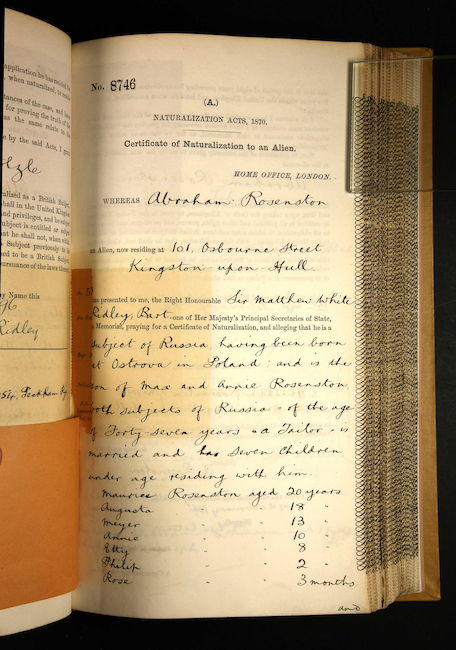 application he has
when naturalized, to
tances of the case, and
for proving the truth of
as the same relate to
by the said Acts, I
alized as a British
shall in the United Kingdom
and privileges, and be
subject is entitled or
that he shall not, when
a Subject previously to
ed to be a British Subject
pursuance of the laws
my Name this
Ridley
Sir, Peckham Rye
No. 8746
(A.)
NATURALIZATION ACTS, 1870.
Certificate of Naturalization to an Alien.
HOME OFFICE, LONDON.
WHEREAS Abraham Rosenston
an Alien, now residing at 101, Osbourne Street
Kingston upon Hull
has presented to me, the Right Honourable Sir Matthew White
Ridley, Bart. one of Her Majesty's Principal Secretaries of State,
a Memorial, praying for a Certificate of Naturalization, and alleging that he is a
subject of Russia, having been born
at Ostrova in Poland: and is the
son of Max and Annie Rosenston,
both subjects of Russia - of the age
of Forty seven years - a Tailor - is
married and has seven children
under age residing with him.
Maurice Rosenston aged 20 years
Augusta " " 18 "
Meyer " " 13 "
Annie " " 10 "
Etty " " 8 "
Philip " " 2 "
Rose " " 3 months
and